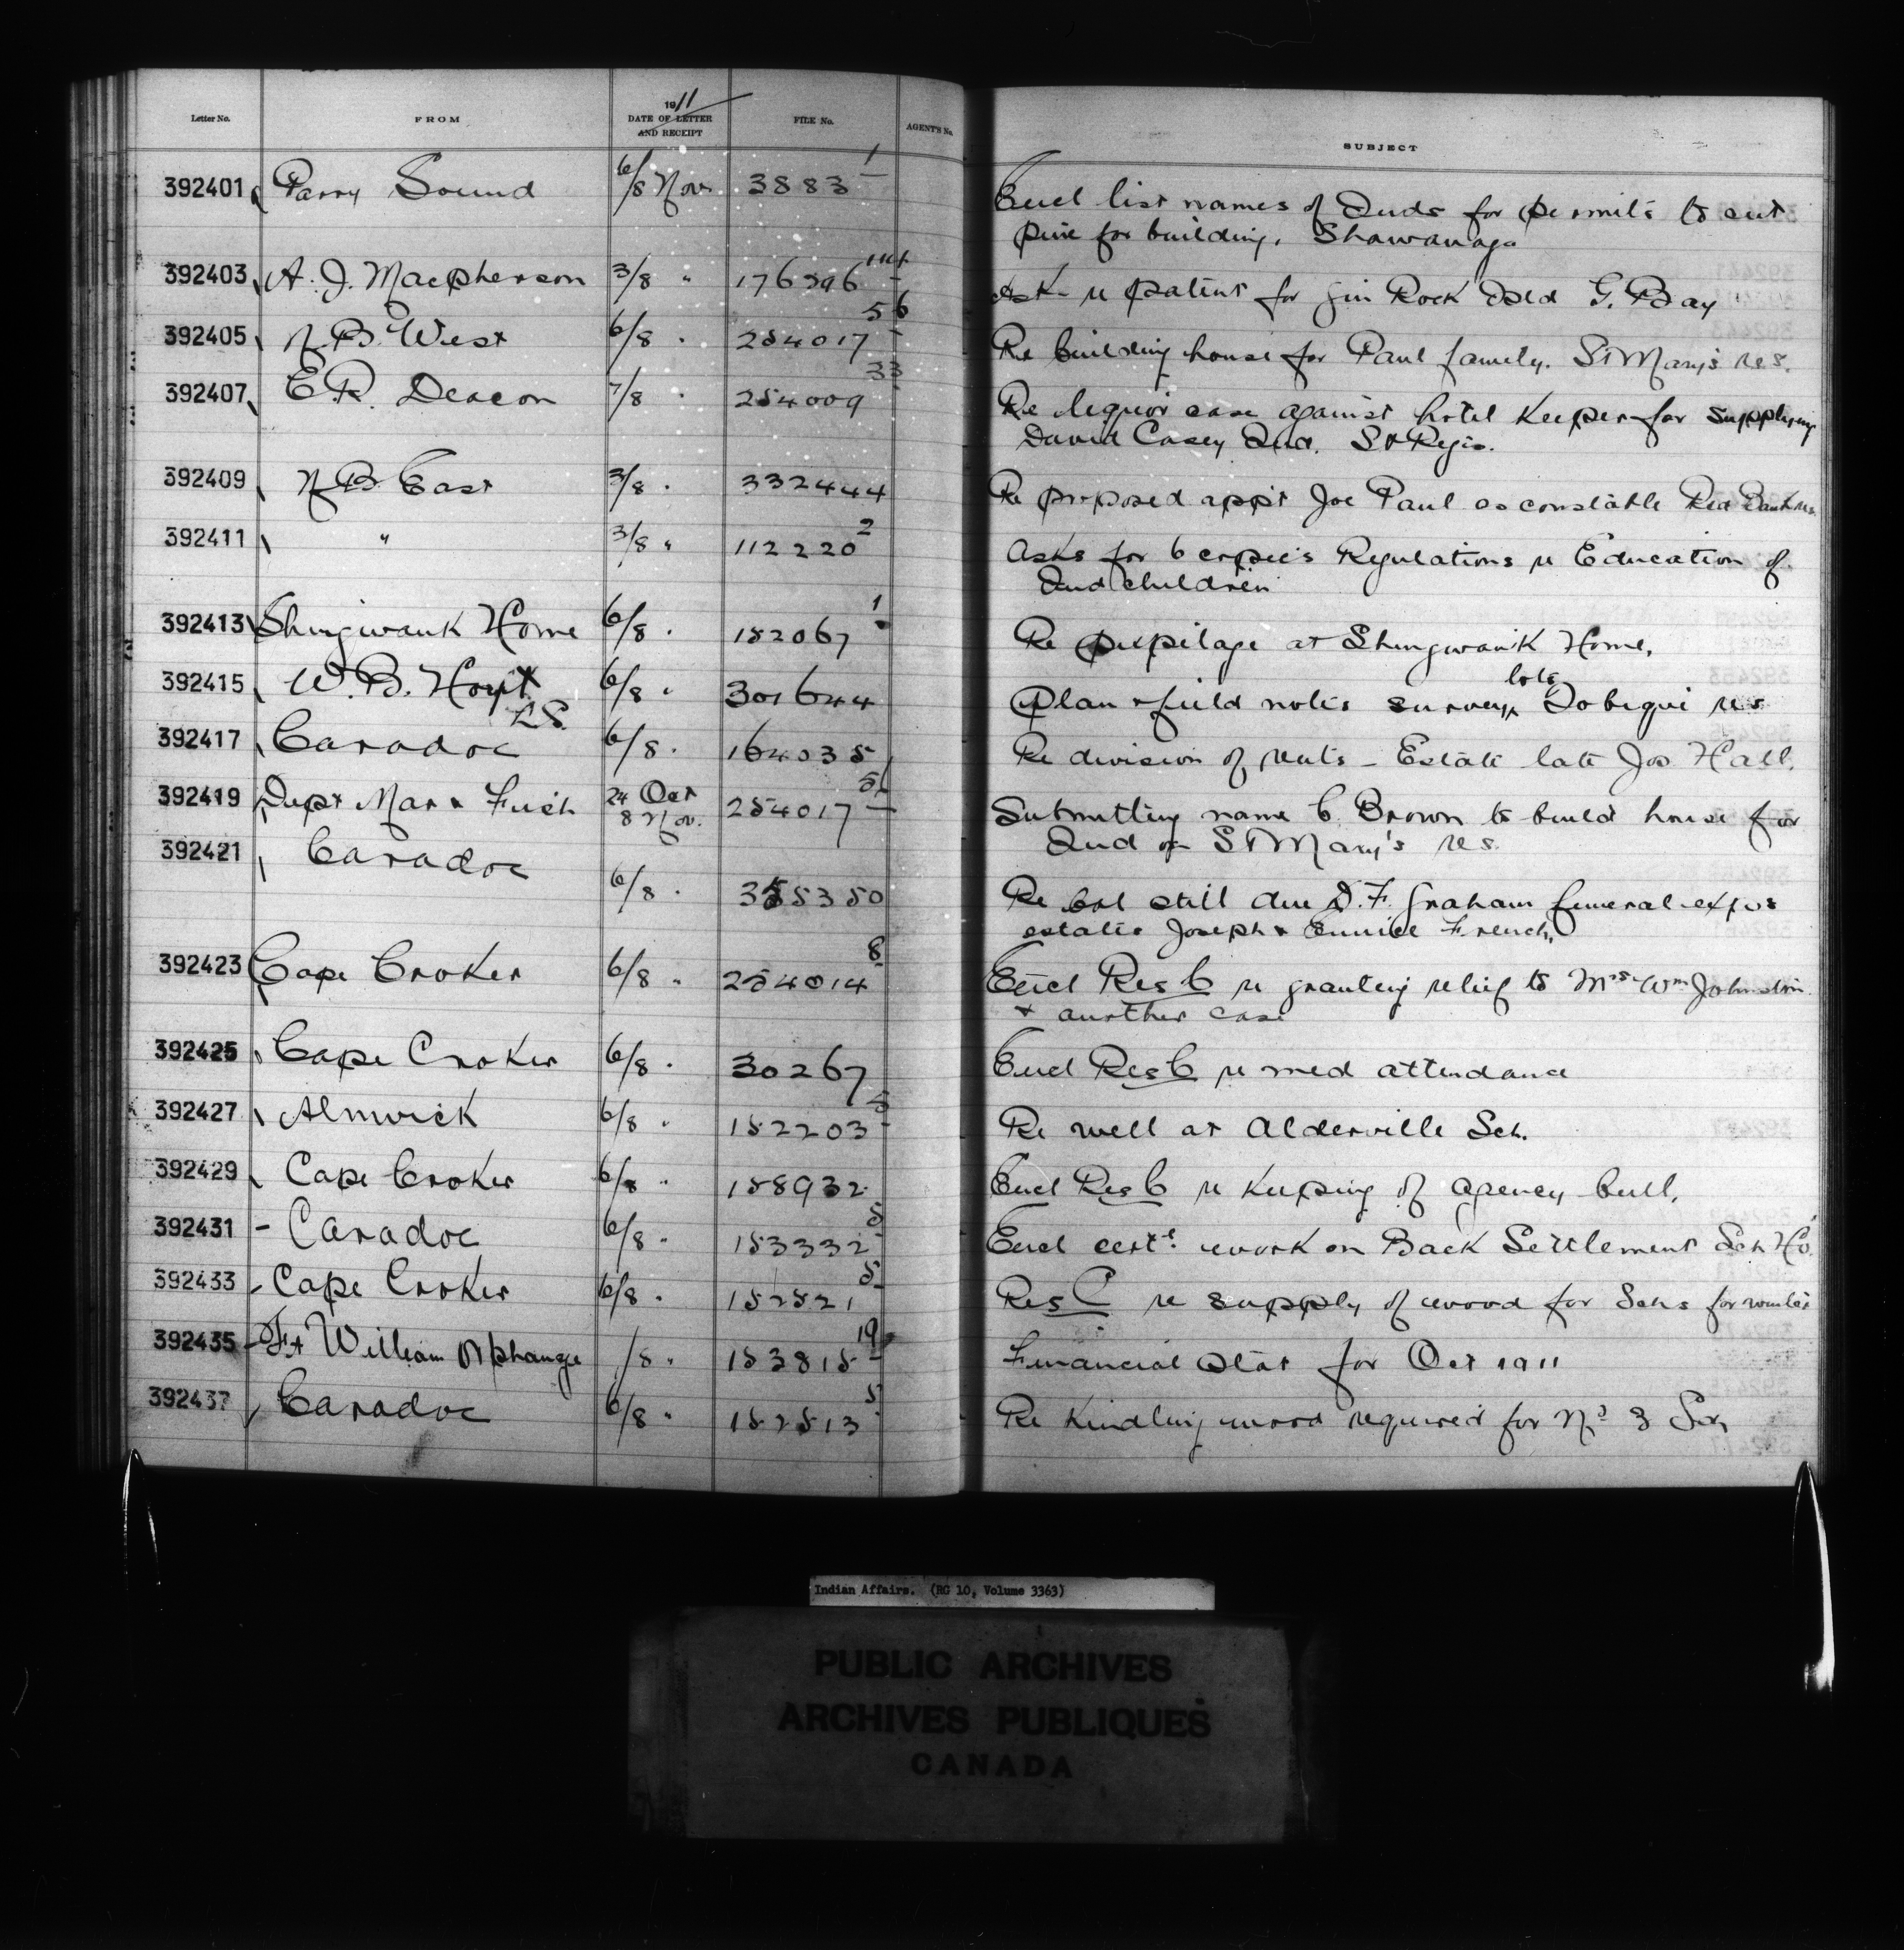 Letter No. FROM 1911 DATE OF LETTER AND RECEIPT FILE No. AGENT'S No. SUBJECT
392401 Parry Sound 6/8 Nov 3883 1 Encl list names of Inds for permits to cut
pine for building. Shawanaga
392403 A. J. Macpherson 3/8 " 176396 Ask re patent for Gin Rock Isld G. Bay
392405 N B West 6/8 " 254017 56 Re building house for Paul family. St Mary's res.
392407 E R. Deacon 7/8 " 254009 33 Re liquor case against hotel keeper for supplying
David Casey Ind. St Regis.
392409 N B East 3/8 " 332444 Re proposed app't Joe Paul as constable Red Bank res
392411 " 3/8 " 112220 2 Asks for 6 copies Regulations re Education of
Ind children
392413 Shingwauk Home 6/8 " 152067 1 Re pupilage at Shingwauk Home.
392415 W. B. Hoyt LS 6/8 " 301644 Plan & field notes survey lots Tobique res
392417 Caradoc 6/8 " 164035 Re division of rents - Estate late Jos Hall.
392419 Dept Mar & Fish 24 Oct 8 Nov. 254017 56 Submitting name C. Brown to build house for
Ind on St Mary's res.
392421 Caradoc 6/8 " 355350 Re bal still due D. F. Graham funeral exps
estates Joseph & Eunice French.
392423 Cape Croker 6/8 " 254014 8 Encl Res C re granting relief to Mrs Wm Johnston
& another case
392425 Cape Croker 6/8 " 30267 Encl Res C re med attendance
392427 Alnwick 6/8 " 152203 5 Re well at Alderville Sch.
392429 Cape Croker 6/8 " 158932 Encl Res C re keeping of agency bull.
392431 - Caradoc 6/8 " 153332 5 Encl cert. work on Back Settlement Sch Ho.
392433 - Cape Croker 6/8 " 152521 5 Res C re supply of wood for Schs for winter
392435 - Ft William Orphanage /8 " 153815 19 Financial Stat for Oct 1911
392437 Caradoc 6/8 " 152513 5 Re kindling wood required for No 3 Sch
Indian Affairs. (RG 10, Volume 3363)
PUBLIC ARCHIVES
ARCHIVES PUBLIQUES
CANADA